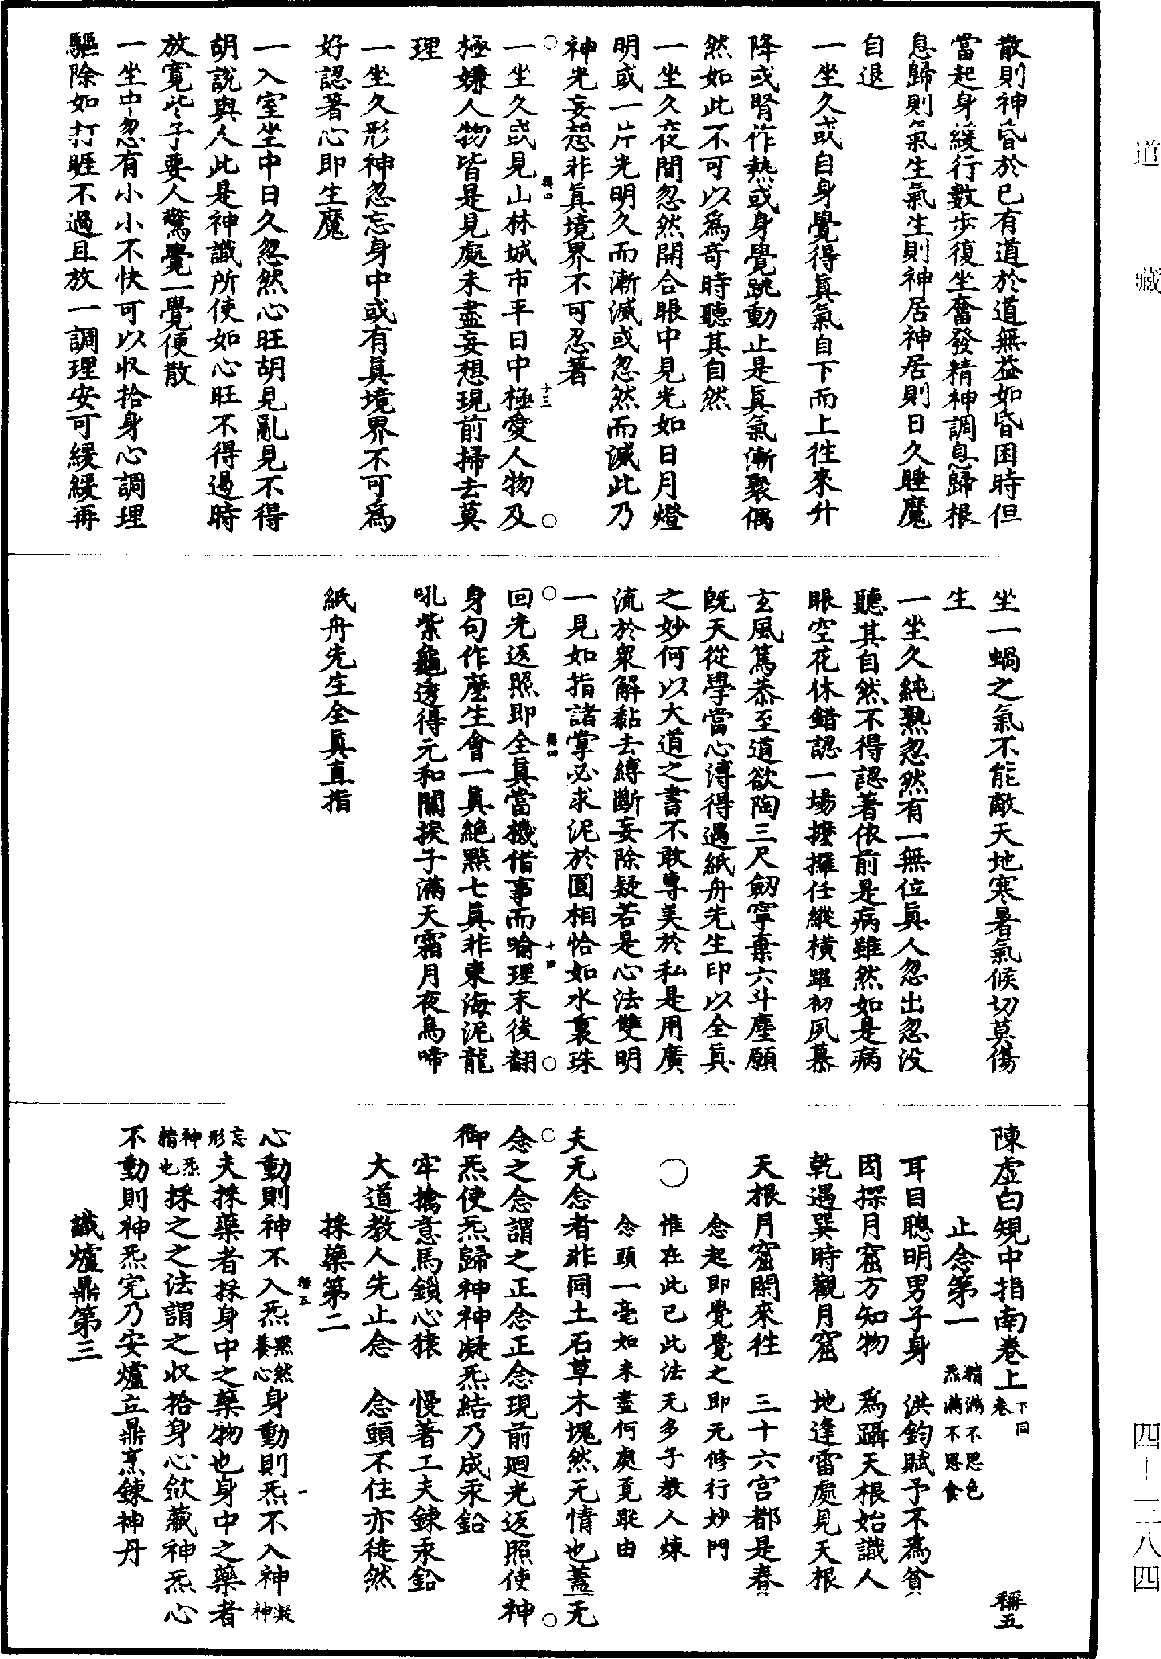 道藏
散則神昏於已有道於道無益如昏困時但
當起身緩行數步復坐奮發精神調息歸根
息歸則氣生氣生則神居神居則日久睡魔
自退
一坐久或自身覺得真氣自下而上徃來升
降或腎作熱或身覺跳動止是真氣漸聚偶
然如此不可以爲奇時聽其自然
一坐久夜間忽然開合眼中見光如日月燈
明或一片光明久而漸滅或忽然而滅此乃
神光妄想非真境界不可忍著
稱四 十三
一坐久或見山林城市平日中極愛人物及
極嫌人物皆是見處未盡妄想現前掃去莫
理
一坐久形神忽忘身中或有真境界不可爲
好認著心即生魔
一入室坐中日久忽然心旺胡見亂見不得
胡說與人此是神識所使如心旺不得過時
放寬些子要人驚覺一覺便散
一坐中忽有小小不快可以収拾身心調理
驅除如打睚不過且放一調理安可緩緩再
坐一蝸之氣不能敵天地寒暑氣候切莫傷
生
一坐久純熟忽然有一無位真人忽出忽没
聽其自然不得認著依前是病雖然如是病
眼空花休錯認一場擾攘任縱橫䟦初夙慕
玄風篤恭至道欲陶三尺劒寧棄六斗塵願
既天從學當心溥得遇紙舟先生印以全真
之妙何以大道之書不敢專美於私是用廣
流於衆解黏去縛斷妄除疑若是心法雙明
一見如指諸掌必求泥於圓相恰如水裏珠
稱四 十四
回光返照即全真當機借事而喻理末後翻
身句作麼生會一真絶點七真非東海泥龍
吼紫龜透得元和關捩子滿天霜月夜烏啼
紙舟先生全真直指
陳虛白規中指南卷上 下同卷 稱五
止念第一 精滿不思色炁滿不思食
耳目聰明男子身 洪鈞賦予不爲貧
因探月窟方知物 爲躡天根始識人
乾遇巽時觀月窟 地逢雷處見天根
天根月窟閑來徃 三十六宫都是春
念起即覺覺之即无修行妙門
〇 惟在此已此法无多子教人煉
念頭一毫如未盡何處覓踪由
夫无念者非同土石草木塊然无情也蓋无
念之念謂之正念正念現前迴光返照使神
御炁使炁歸神神凝炁結乃成汞鉛
牢擒意馬鎖心猿 慢著工夫鍊汞鉛
大道教人先止念 念頭不住亦徒然
採藥第二
稱五 一
心動則神不入炁 黙然養心 身動則炁不入神 凝神
忘形 夫採藥者採身中之藥物也身中之藥者
神炁精也 採之之法謂之収拾身心斂藏神炁心
不動則神炁完乃安爐立鼎烹鍊神丹
識爐鼎第三
四—二八四